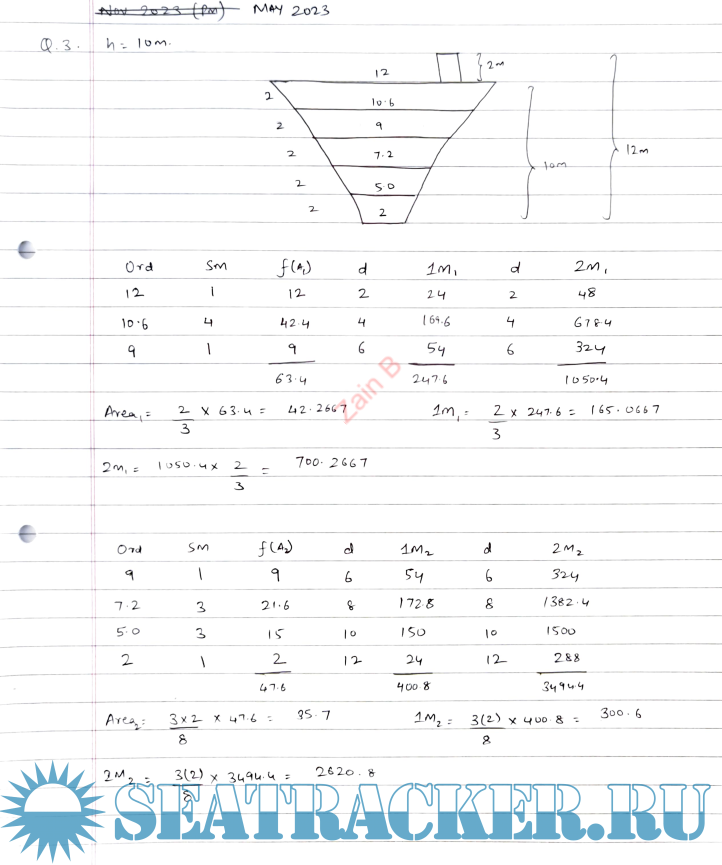 Nov 2023 (PM) MAY 2023
Q.3. h = 10m.
12
2m
2 10.6
2 9
2 7.2
2 5.0
2 2
10m
12m
Ord SM f(A₁) d 1M₁ d 2M₁
12 1 12 2 24 2 48
10.6 4 42.4 4 169.6 4 678.4
9 1 9 6 54 6 324
63.4 247.6 1050.4
Area₁ = 2/3 × 63.4 = 42.2667 1M₁ = 2/3 × 247.6 = 165.0667
2M₁ = 1050.4 × 2/3 = 700.2667
Zain B
Ord SM f(A₂) d 1M₂ d 2M₂
9 1 9 6 54 6 324
7.2 3 21.6 8 172.8 8 1382.4
5.0 3 15 10 150 10 1500
2 1 2 12 24 12 288
47.6 400.8 3494.4
Area₂ = 3×2/8 × 47.6 = 35.7 1M₂ = 3(2)/8 × 400.8 = 300.6
2M₂ = 3(2)/8 × 3494.4 = 2620.8
SEATRACKER.RU